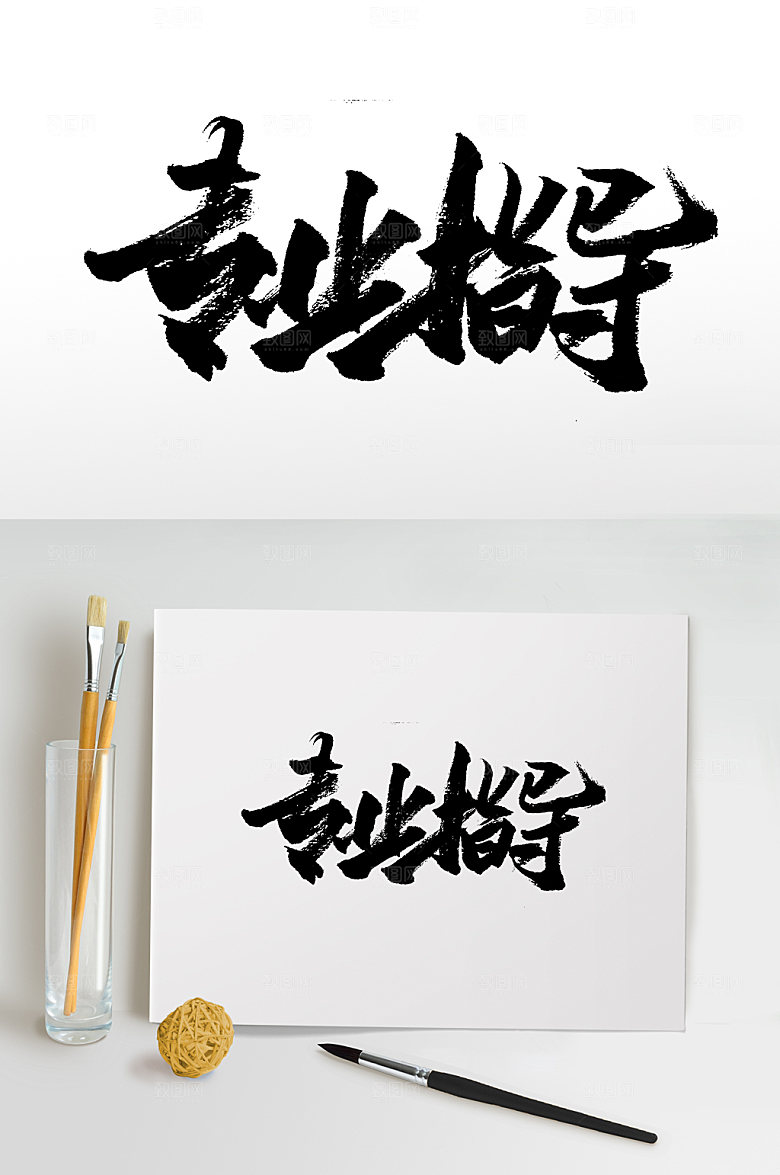 专业指导
专业指导